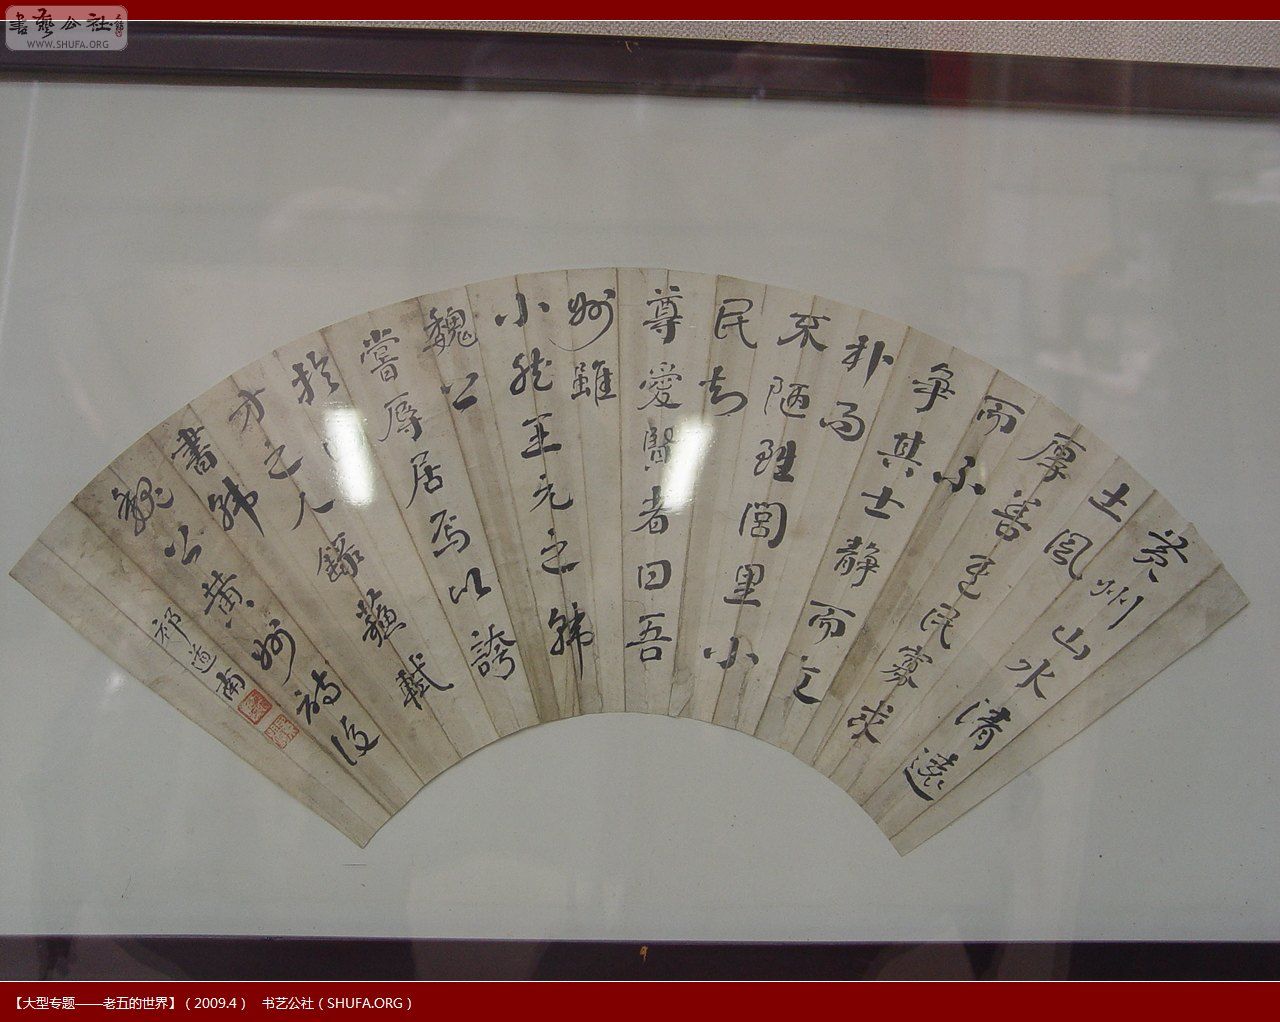 書藝公社
WWW.SHUFA.ORG
黄州山水清遠
土風
厚善其民寡求
而不
争其士静而文
朴而
不陋雖閭里小
民知
尊愛賢者曰吾
州雖
小然王元之韓
魏公
嘗辱居焉以誇
於
之人 蘇軾
書韓
魏公黄州詩後
祁道南
【大型专题——老五的世界】（2009.4） 书艺公社（SHUFA.ORG）